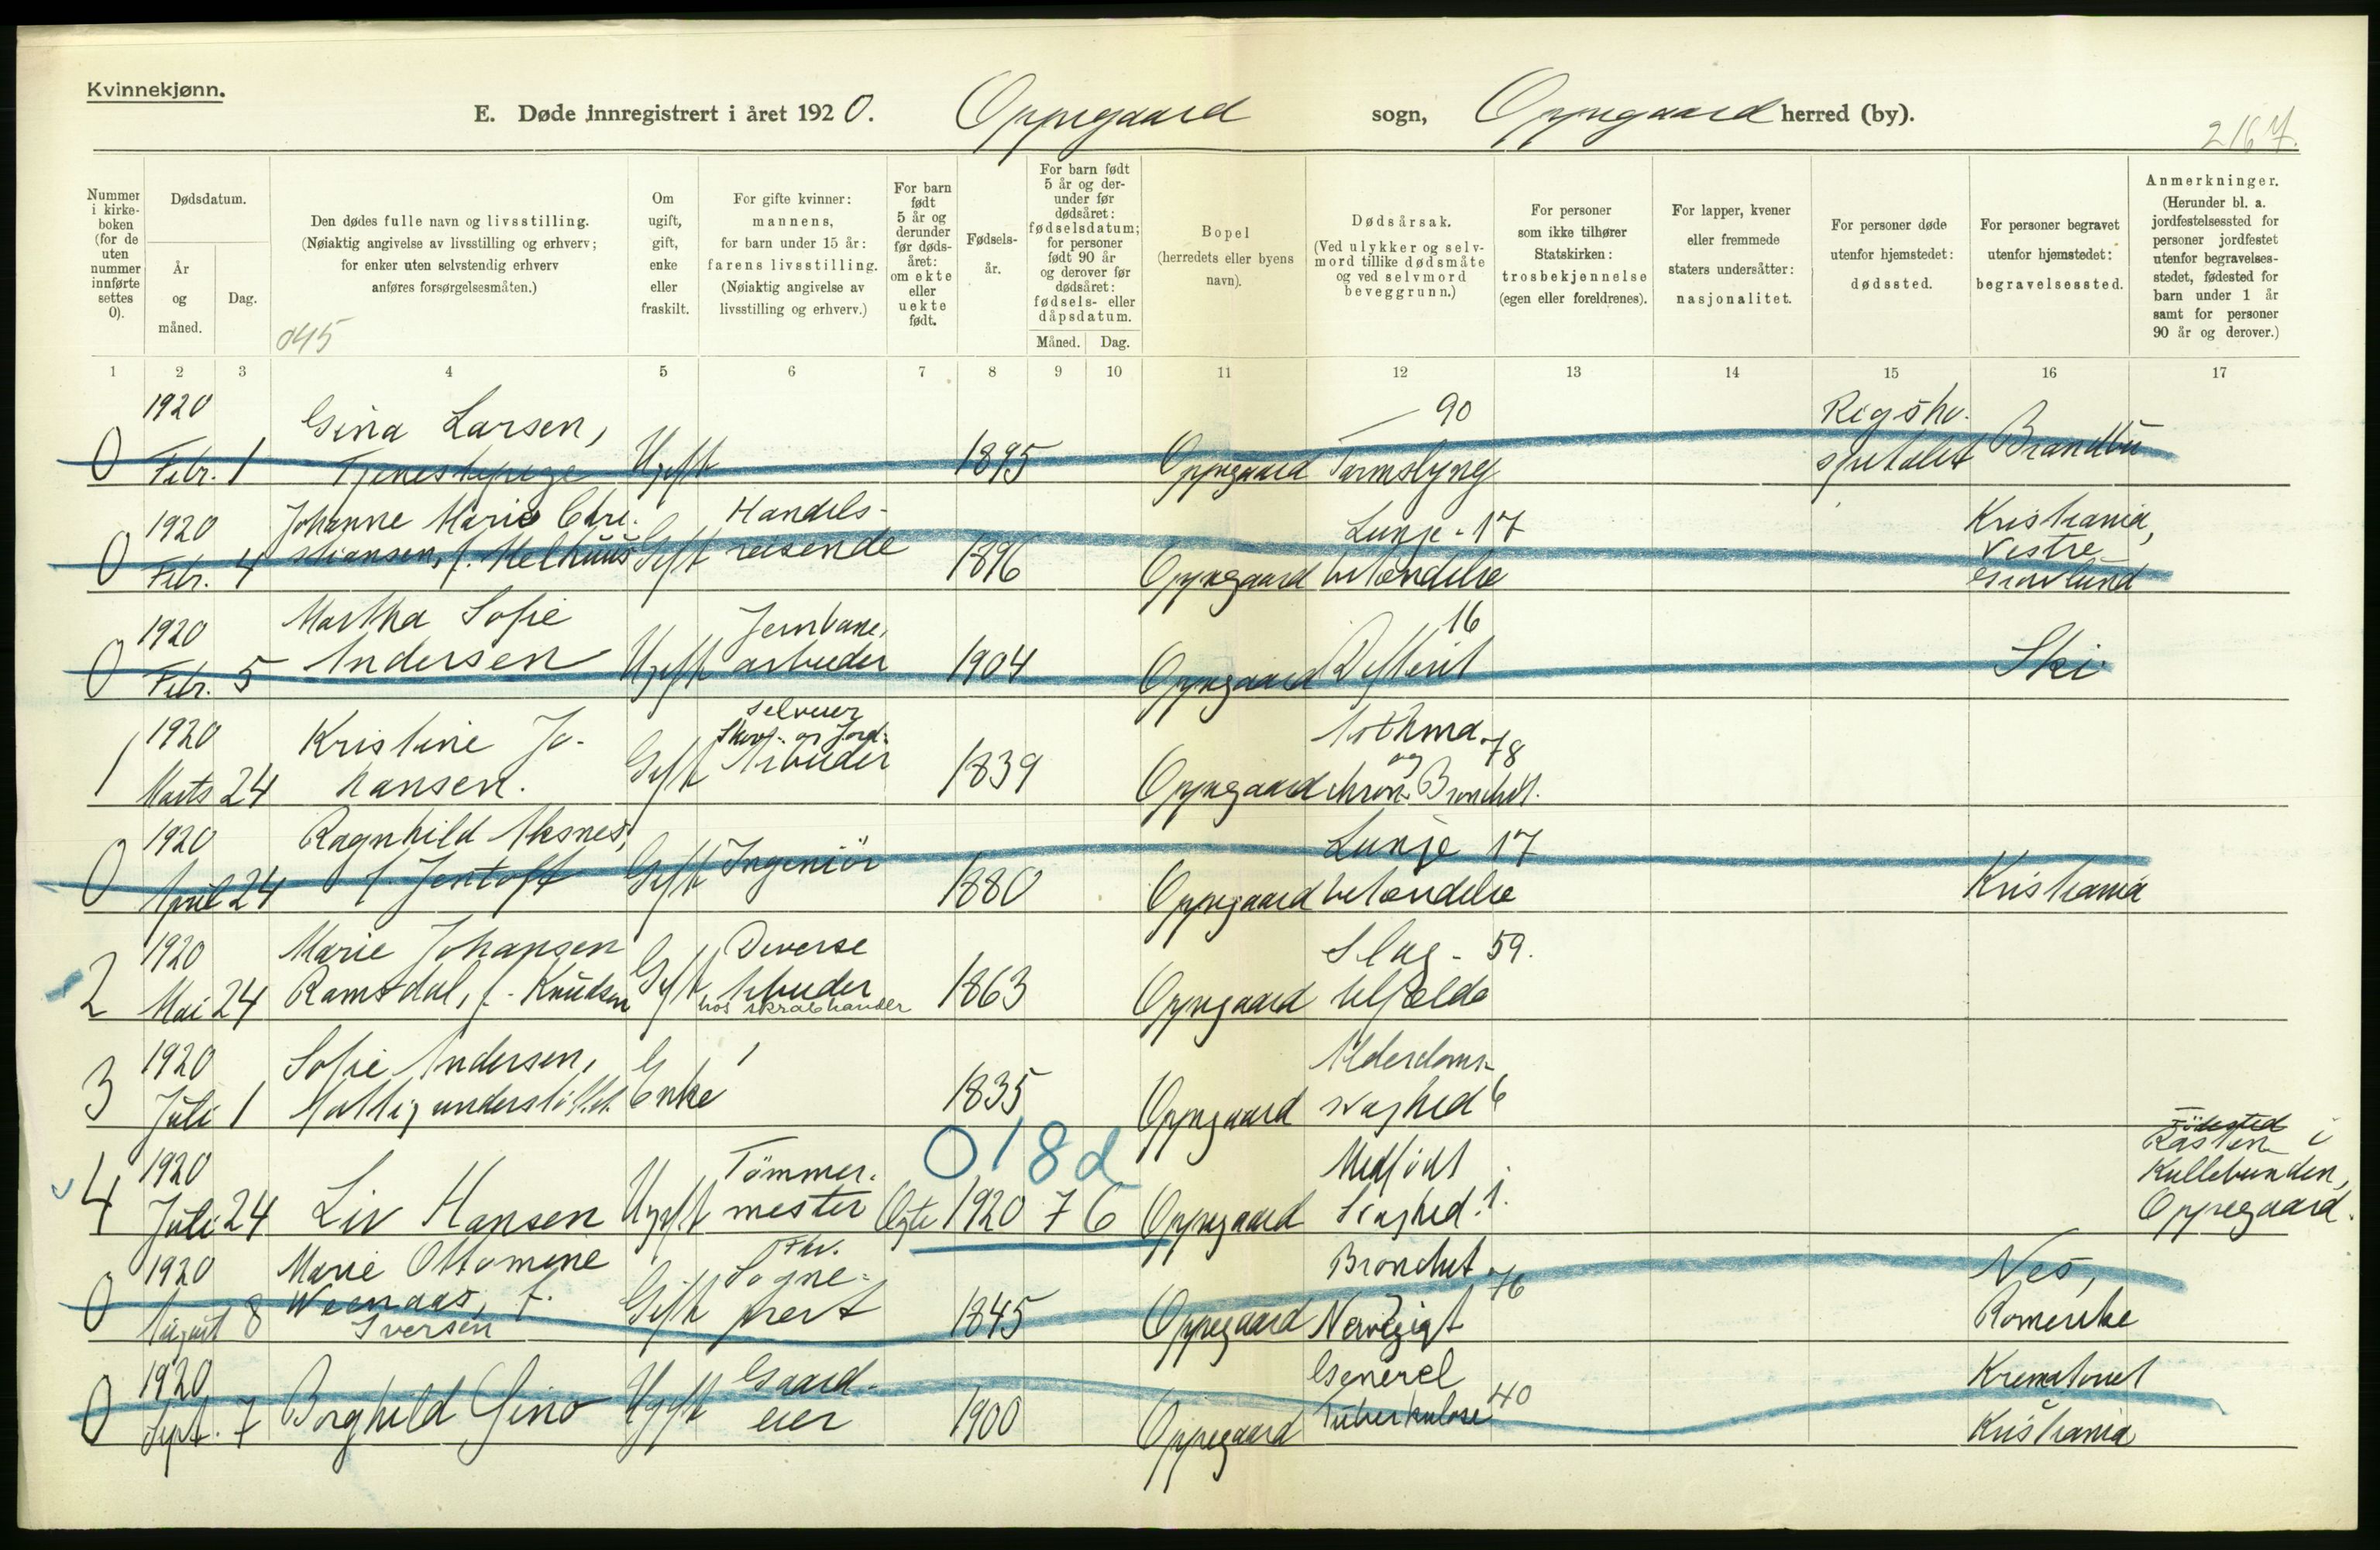 Kvinnekjønn.
E. Døde innregistrert i året 1920. Oppegaard sogn, Oppegaard herred (by).
2167.
Nummer i kirke-boken (for de uten nummer innførte settes 0).
Dødsdatum.
År og måned.
Dag.
Den dødes fulle navn og livsstilling.
(Nøiaktig angivelse av livsstilling og erhverv;
for enker uten selvstendig erhverv
anføres forsørgelsesmåten.)
045
Om ugift, gift, enke eller fraskilt.
For gifte kvinner: mannens,
for barn under 15 år:
farens livsstilling.
(Nøiaktig angivelse av
livsstilling og erhverv.)
For barn født 5 år og derunder før døds-året: om ekte eller uekte født.
Fødsels-år.
For barn født 5 år og der-under før dødsåret: fødselsdatum; for personer født 90 år og derover før dødsåret: fødsels- eller dåpsdatum.
Måned. Dag.
Bopel
(herredets eller byens navn).
Dødsårsak.
(Ved ulykker og selv-mord tillike dødsmåte og ved selvmord beveggrunn.)
For personer som ikke tilhører Statskirken: trosbekjennelse (egen eller foreldrenes).
For lapper, kvener eller fremmede staters undersåtter: nasjonalitet.
For personer døde utenfor hjemstedet: dødssted.
For personer begravet utenfor hjemstedet: begravelsessted.
Anmerkninger.
(Herunder bl. a. jordfestelsessted for personer jordfestet utenfor begravelses-stedet, fødested for barn under 1 år samt for personer 90 år og derover.)
1 2 3 4 5 6 7 8 9 10 11 12 13 14 15 16 17
1920 Gina Larsen, 90 Rigsho-
0 Febr. 1 Tjenestepige Ugift 1895 Oppegaard Tarmslyng spitalet Brandbu
1920 Johanne Marie Chri- Handels- Lunge- 17 Kristiania,
Vestre
0 Febr. 4 stiansen, f. Melhuus Gift reisende 1896 Oppegaard betændelse Gravlund
1920 Martha Sofie Jernbane- 16
0 Febr. 5 Andersen Ugift arbeider 1904 Oppegaard Difterit Ski
selveier
1920 Kristine Jo- Skog- og Jord- Asthma 78
og
1 Marts 24 hansen. Gift Arbeider 1839 Oppegaard chron. Bronchit.
1920 Ragnhild Aksnes, Lunge 17
0 April 24 f. Jentoft Gift Ingeniör 1880 Oppegaard betændelse Kristiania
1920 Marie Johansen Diverse Slag- 59.
2 Mai 24 Ramsdal, f. Knudsen Gift Arbeider 1863 Oppegaard tilfælde
hos skrabhandler
1920 Sofie Andersen, Alderdoms-
3 Juli 1 Fattigunderstöttet. Enke 1835 Oppegaard svaghed 6
018d
Födested
1920 Tömmer- Medfödt Kasten i
Kullebunden,
4 Juli 24 Liv Hansen Ugift mester Ægte 1920 7 6 Oppegaard Svaghed. 1. Oppegaard.
1920 Marie Ottomine Fhv. Sogne- Bronchit 76 Nes,
0 August 8 Weenaas, f. Gift prest 1845 Oppegaard Nervegigt Romerike
Iversen
1920 Gaard- Generel 40 Krematoriet
0 Sept. 7 Borghild Gino Ugift eier 1900 Oppegaard Tuberkulose Kristiania